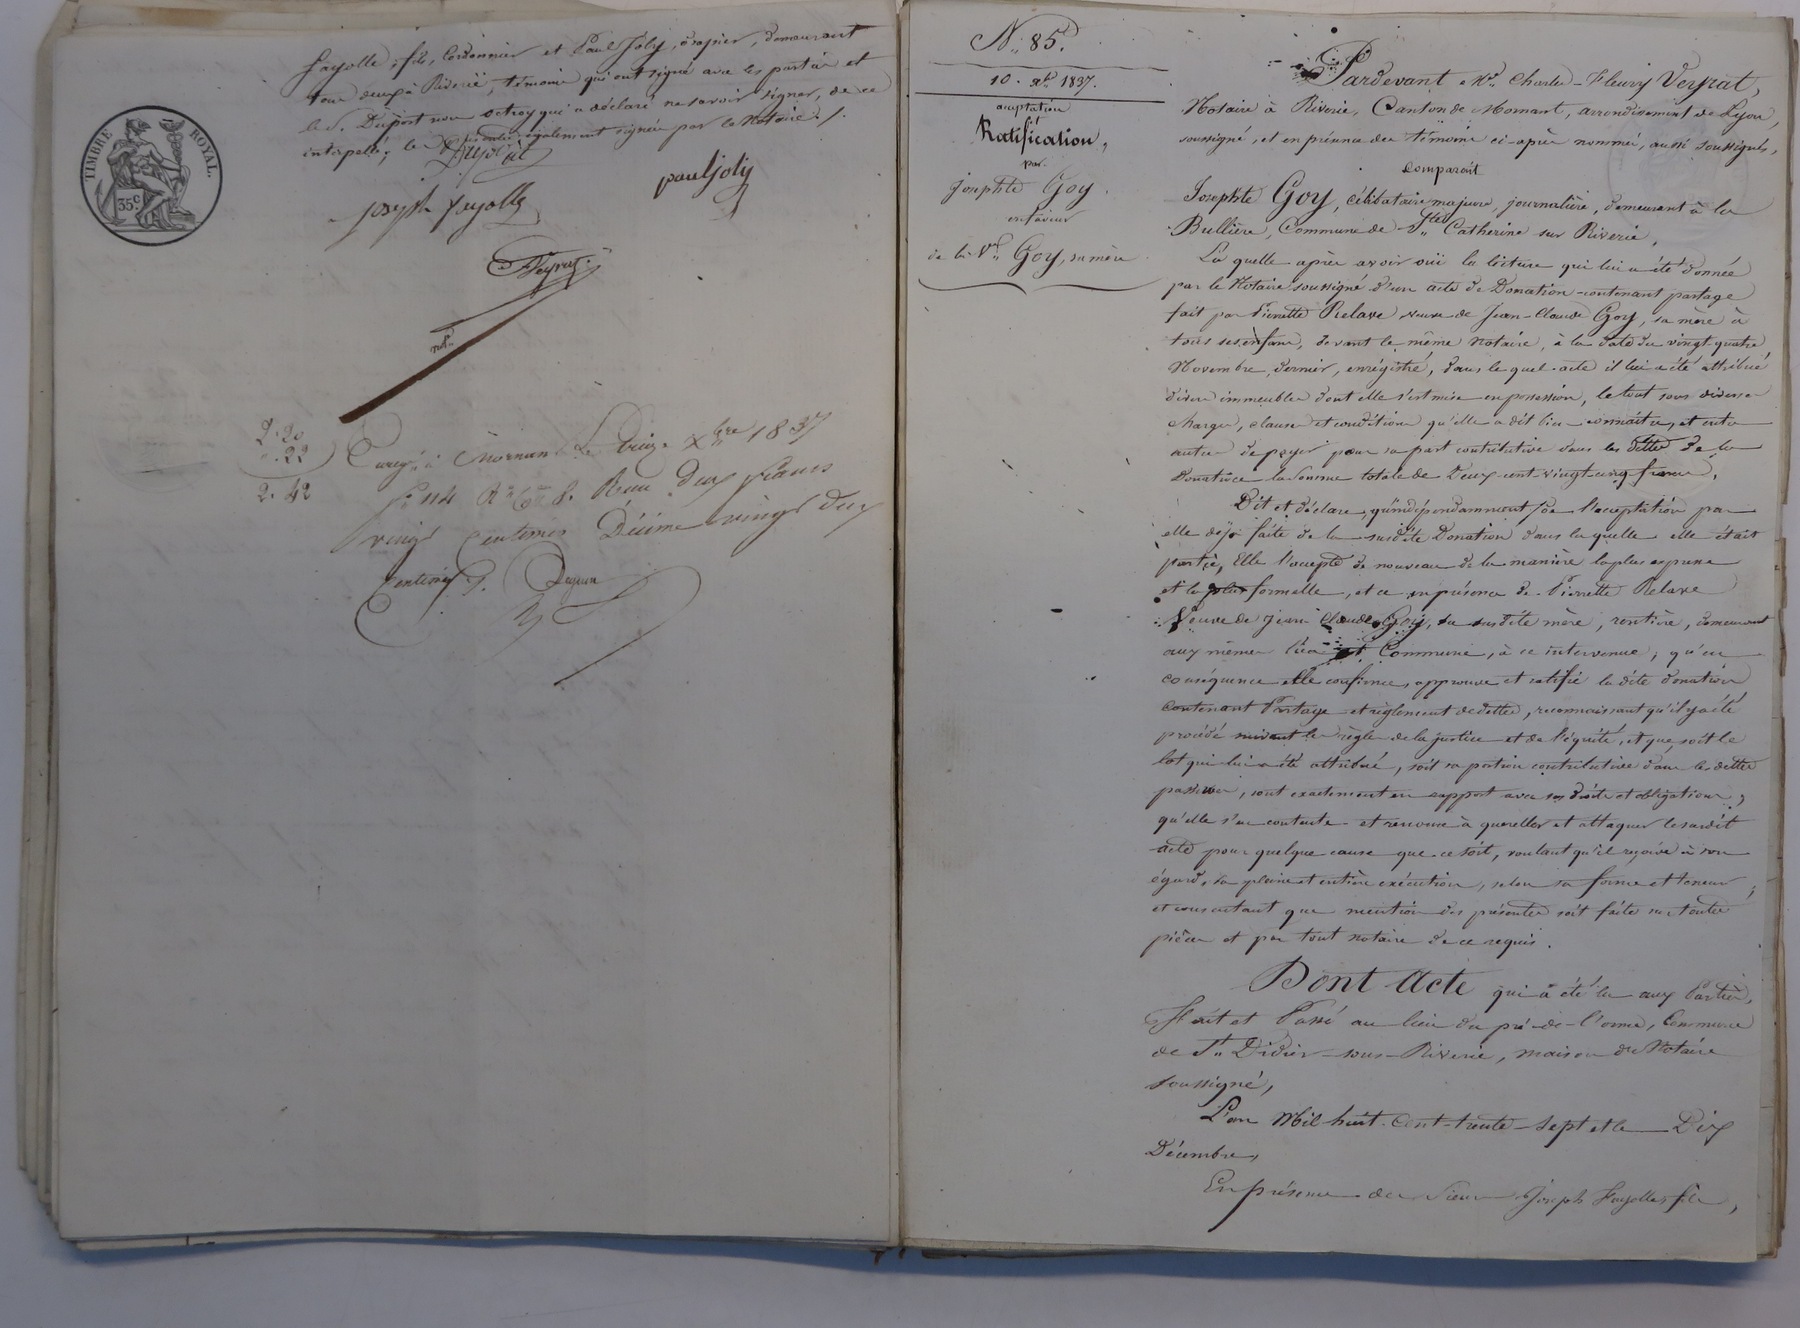 fayolle, fils, Cordonnier et Paul Joly, drapier, demeurant
tous deux à Riverie, témoins qui ont signé avec les parties et
le S. Dupont non octroy qui a déclaré ne savoir signer, de ce
interpellé; le également signée par le Notaire ./.
TIMBRE ROYAL.
35c.
paul joly
joseph fayolle
Veyrat
not.
2. 20
. 22
2. 42
Enreg. à Mornant Le treize Xbre 1837
fo. 114 Ro. Co. 8. Reçu deux francs
vingt Centimes Décime vingt deux
Centimes
N. 85.
10. Xbre 1837.
acceptation
Ratification,
par
Josephte Goy
en faveur
de la Ve. Goy, sa mère
Pardevant Me. Charles-Fleury Veyrat,
Notaire à Riverie, Canton de Mornant, arrondissement de Lyon,
soussigné, et en présence des témoins ci-après nommés, aussi soussignés,
Comparait
Josephte Goy, célibataire majeure, journalière, demeurant à la
Bullière, Commune de Ste. Catherine sur Riverie,
La quelle après avoir oüi la lecture qui lui a été donnée
par le Notaire soussigné d'un acte de Donation contenant partage
fait par Pierrette Relave veuve de Jean-Claude Goy, sa mère à
tous ses enfans, devant le même notaire, à la date du vingt quatre
Novembre dernier, enrégistré, dans le quel acte il lui a été attribué
divers immeubles dont elle s'est mise en possession, le tout sous diverses
charges, clauses et conditions qu'elle a dit bien connaitre, et entre
autres de payer pour sa part contributive dans les dettes de la
Donatrice la somme totale de Deux cent vingt cinq francs,
Dit et déclare, qu'indépendamment de l'acceptation par
elle déjà faite de la susdite Donation dans la quelle elle était
partie, Elle l'accepte de nouveau de la manière la plus expresse
et la plus formelle, et ce en présence de Pierrette Relave
Veuve de Jean Claude Goy, sa susdite mère, rentière, demeurant
aux mêmes lieu et Commune, à ce intervenue; qu'en
conséquence elle confirme, approuve et ratifie la dite donation
contenant Partage et règlement de dettes, reconnaissant qu'il y a été
procédé suivant les règles de la justice et de l'équité, et que, soit le
lot qui lui a été attribué, soit sa portion contributive dans les dettes
passives, sont exactement en rapport avec ses droits et obligations,
qu'elle s'en contente et renonce à quereller et attaquer le susdit
acte pour quelque cause que ce soit, voulant qu'il reçoive à son
égard, sa pleine et entière exécution, selon sa forme et teneur;
et consentant que mention des présentes soit faite sur toutes
pièces et par tout notaire de ce requis.
Dont Acte qui a été lu aux Parties,
Fait et Passé au lieu du pré-de-l'orme, Commune
de St. Didier-sous-Riverie, maison du Notaire
soussigné,
L'an Mil huit-cent-trente-sept et le Dix
Décembre,
En présence des Sieurs Joseph Fayolle, fils,